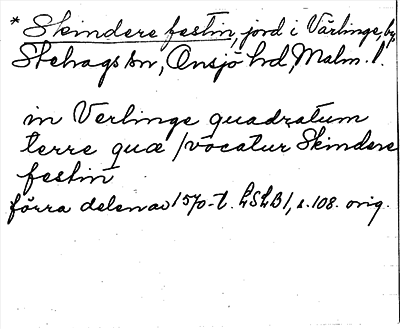 * Skindere festin, jord i Värlinge, by,
Stehags sn, Onsjö hd, Malm. l.
in Verlinge quadratum
terre quæ /vocatur Skindere
festin
förra delen av 1570-t. LSLB 1, s. 108. orig.